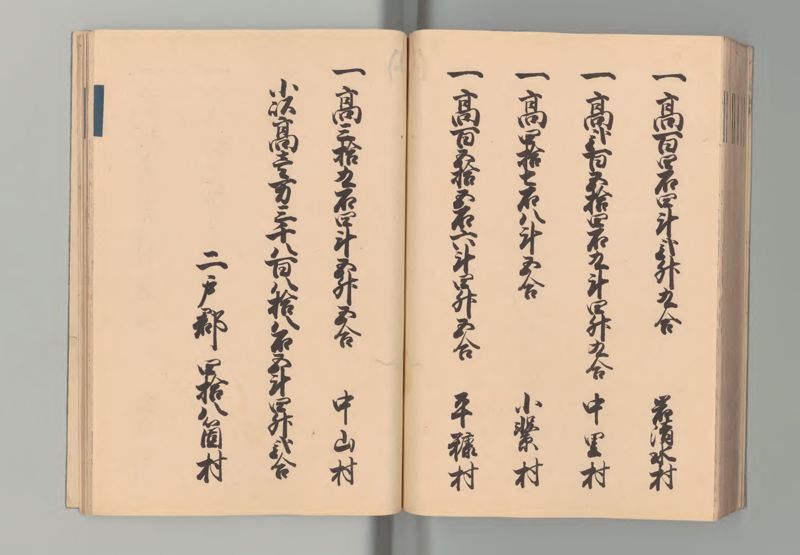 一高百四石四斗弐升九合 岩清水村
一高弐百五拾四石九斗四升九合 中里村
一高四拾七石八斗五合 小繋村
一高百五拾五石六斗四升五合 平糠村
一高三拾九石四斗五升五合 中山村
小以高壱万三千八百八拾八石五斗四升弐合
二戸郡四拾八箇村